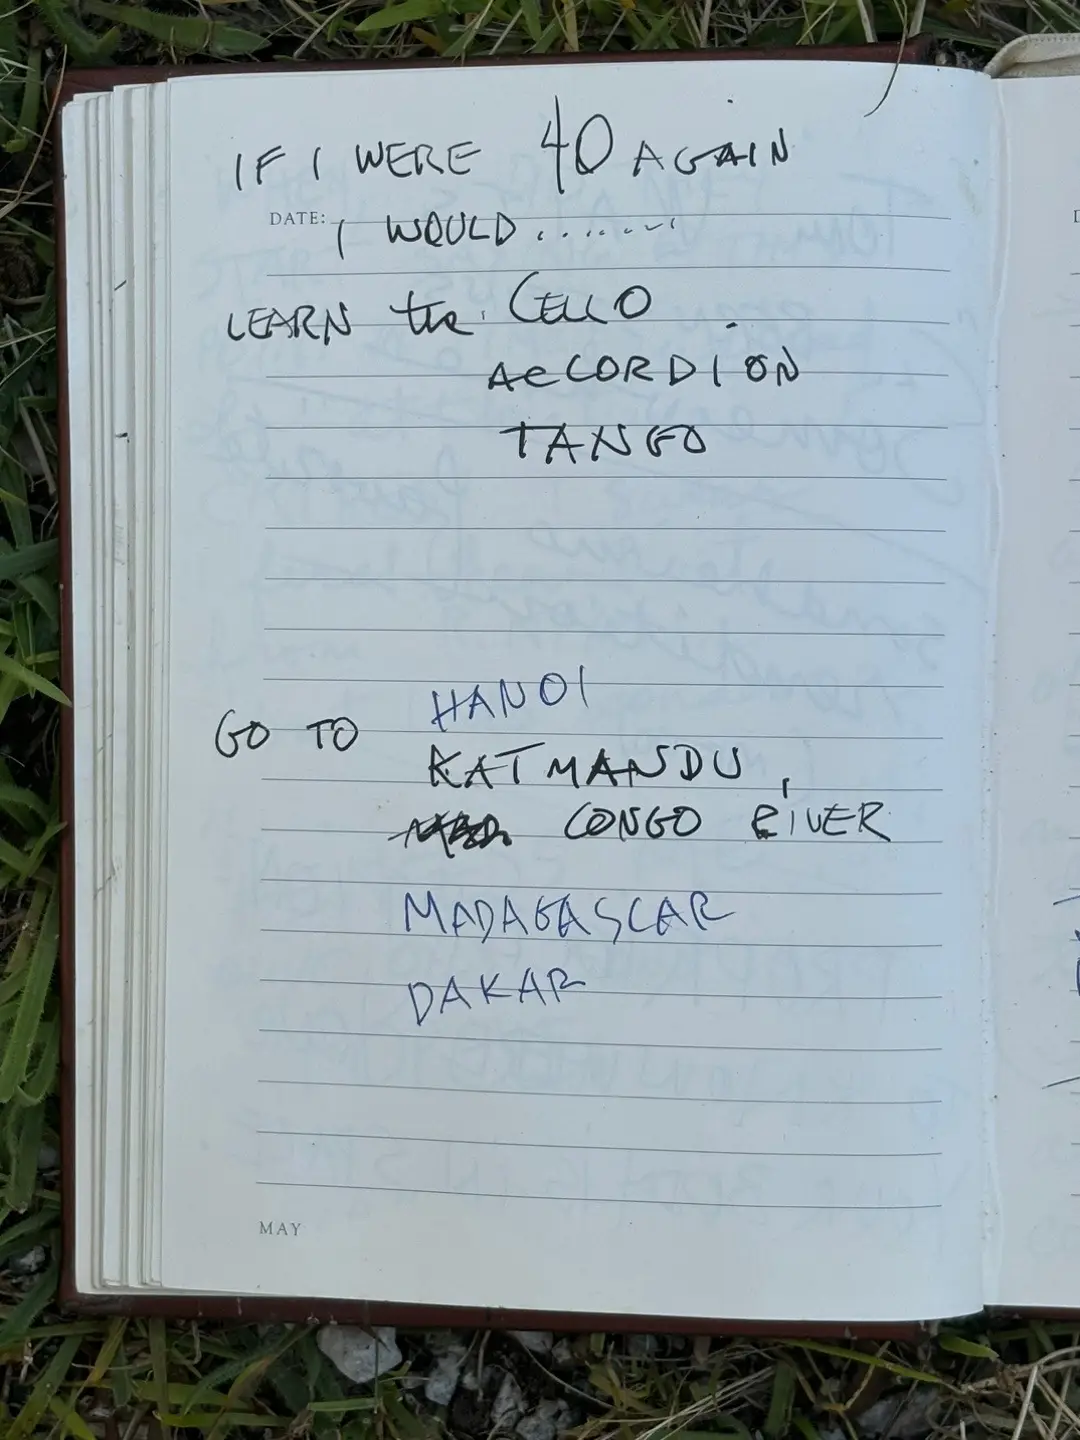 IF I WERE 40 AGAIN
DATE: I WOULD .......
LEARN the CELLO
ACCORDION
TANGO
HANOI
GO TO
KATMANDU,
CONGO RIVER
MADAGASCAR
DAKAR
MAY